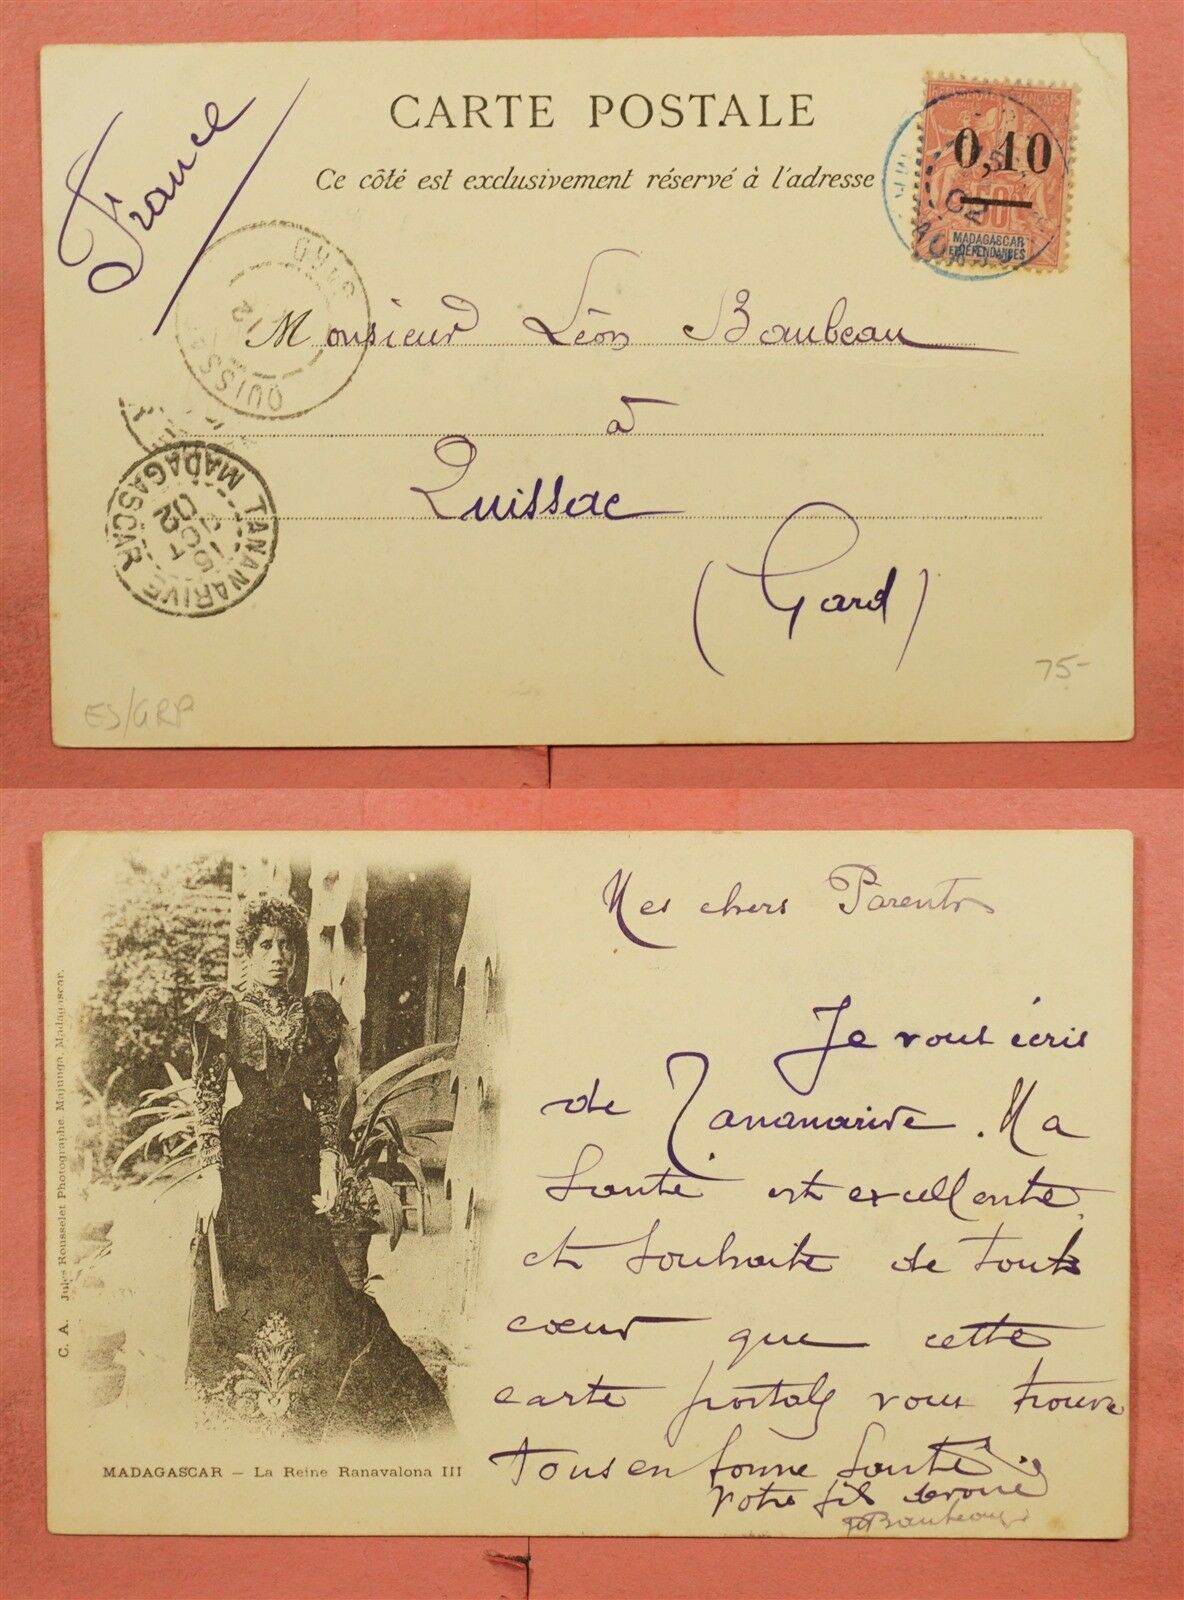 CARTE POSTALE
Ce côté est exclusivement réservé à l'adresse
France
REPUBLIQUE FRANÇAISE
COLONIES
0,10
50
MADAGASCAR
ET DÉPENDANCES
QUISSAC
GARD
12
Monsieur Léon Baubeau
à
Quissac
(Gard)
TANANARIVE
MADAGASCAR
15
OCT
02
75-
ES/GRP
Mes chers Parents
Je vous écris
de Tananarive. Ma
Santé est excellente
et souhaite de tout
cœur que cette
carte postale vous trouve
tous en bonne Santé
Votre fils dévoué
Baubeau
C. A. Jules Rousselet Photographe Majunga, Madagascar.
MADAGASCAR – La Reine Ranavalona III